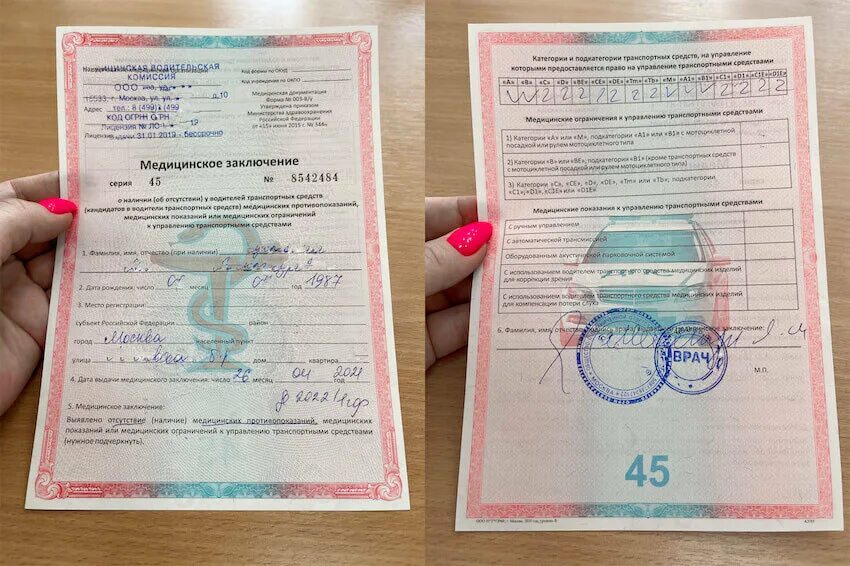 Наименование
МЕДИЦИНСКАЯ ВОДИТЕЛЬСКАЯ
КОМИССИЯ
ООО
г. Москва, ул. д.10
Адрес тел.: 8 (499) (499
КОД ОГРН
Лицензия № ЛО-
Лицензия выдачи 31.01.2019 - Бессрочно
Код формы по ОКУД
Код учреждения по ОКПО
Медицинская документация
Форма № 003-В/у
Утверждена приказом
Министерства здравоохранения
Российской Федерации
от «15» июня 2015 г. № 344н
Медицинское заключение
серия 45 № 8542484
о наличии (об отсутствии) у водителей транспортных средств
(кандидатов в водители транспортных средств) медицинских противопоказаний,
медицинских показаний или медицинских ограничений
к управлению транспортными средствами
1. Фамилия, имя, отчество (при наличии)
2. Дата рождения: число месяц год 1987
3. Место регистрации:
субъект Российской Федерации район
город Москва населенный пункт
улица дом квартира
4. Дата выдачи медицинского заключения: число 26 месяц 04 год 2021
до 2022/
5. Медицинское заключение:
Выявлено отсутствие (наличие) медицинских противопоказаний, медицинских
показаний или медицинских ограничений к управлению транспортными средствами
(нужное подчеркнуть).
Категории и подкатегории транспортных средств, на управление
которыми предоставляется право на управление транспортными средствами
«A» «B» «C» «D» «BE» «CE» «DE» «Tm» «Tb» «M» «A1» «B1» «C1» «D1» «C1E» «D1E»
Медицинские ограничения к управлению транспортными средствами
1) Категории «A» или «M», подкатегории «A1» или «B1» с мотоциклетной
посадкой или рулем мотоциклетного типа
2) Категории «B» или «BE», подкатегории «B1» (кроме транспортных средств
с мотоциклетной посадкой или рулем мотоциклетного типа)
3) Категории «C», «CE», «D», «DE», «Tm» или «Tb», подкатегории
«C1», «D1», «C1E» или «D1E»
Медицинские показания к управлению транспортными средствами
С ручным управлением
С автоматической трансмиссией
Оборудованным акустической парковочной системой
С использованием водителем транспортного средства медицинских изделий
для коррекции зрения
С использованием водителем транспортного средства медицинских изделий
для компенсации потери слуха
6. Фамилия, имя, отчество, подпись врача, выдавшего медицинское заключение:
ВРАЧ
М.П.
45